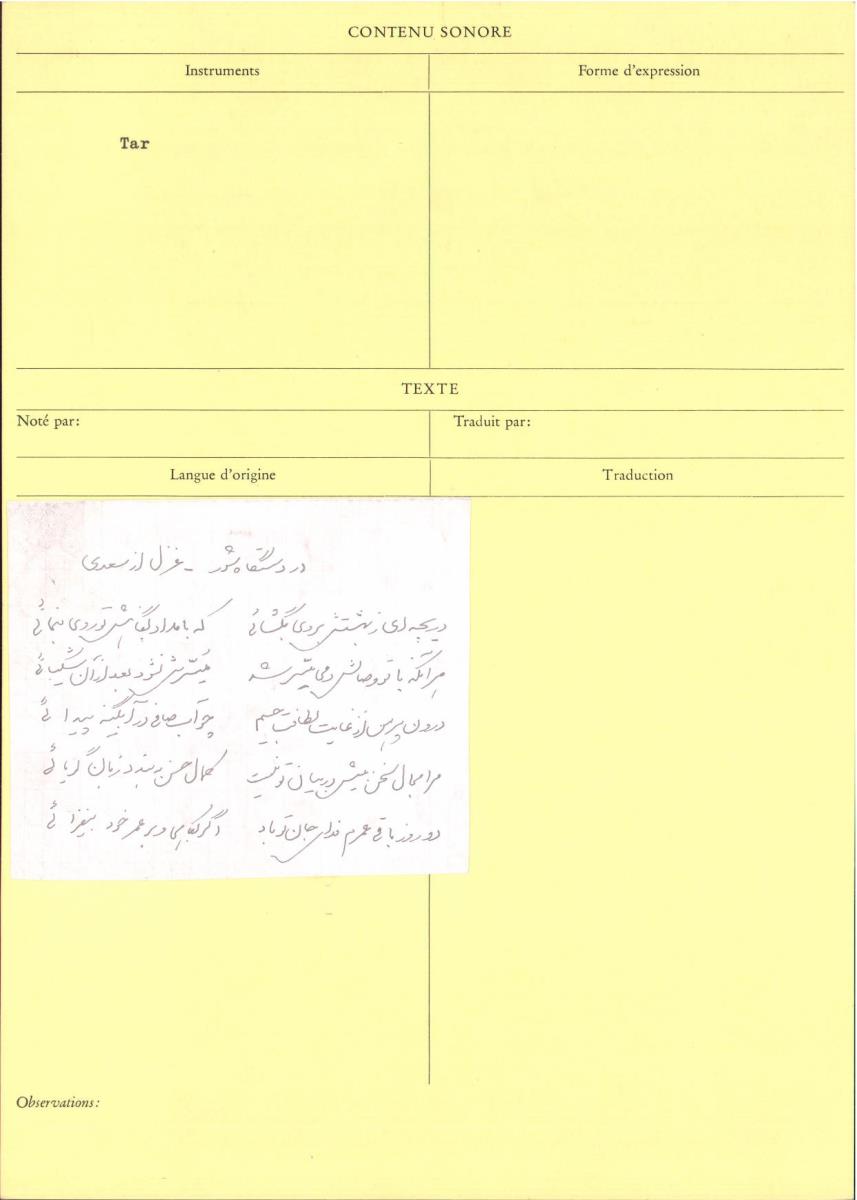 CONTENU SONORE
Instruments
Forme d'expression
Tar
TEXTE
Noté par:
Traduit par:
Langue d'origine
Traduction
در دستگاه شور - غزل از سعدی
دریچه ای ز بهشتش بروی بگشائی که بامداد پگاهش تو روی بنمائی
هرآنکه با تو وصالش دمی میسّر شد میسّرش نشود بعد از آن شکیبائی
درون پیرهن از غایت لطافت جسم چو آب صافی در آبگینه پیدائی
مرا مجال سخن بیش در بیان تو نیست کمال حسن ببندد زبان گویائی
دو روز باقی عمرم فدای جان تو باد اگر بکاهی و بر عمر خود بیفزائی
Observations: